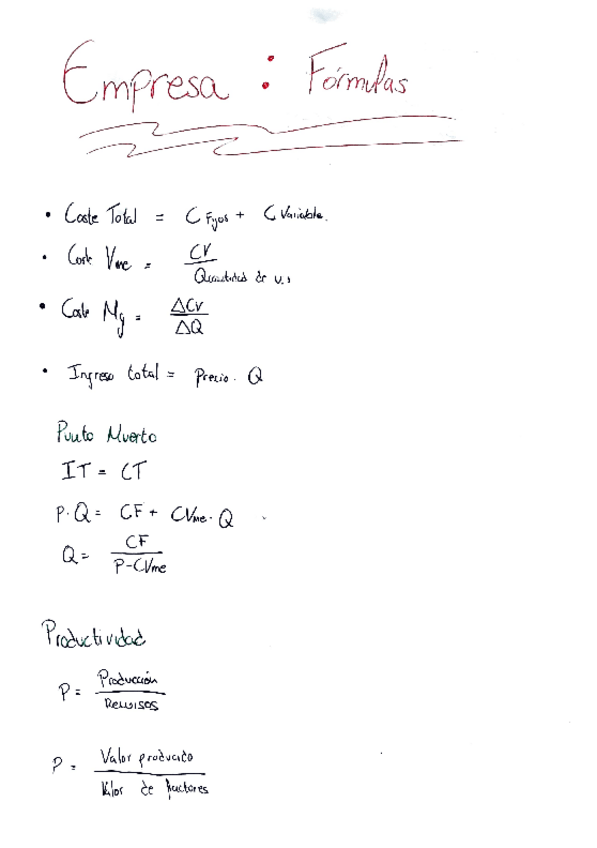 Empresa : Fórmulas
• Coste Total = C Fijos + C Variable.
• Coste Vme = CV / Quantidad de u.,
• Coste Mg = ΔCv / ΔQ
• Ingreso total = Precio · Q
Punto Muerto
IT = CT
P·Q = CF + CVme·Q
Q = CF / P-CVme
Productividad
P = Producción / Recursos
P = Valor producido / Valor de factores